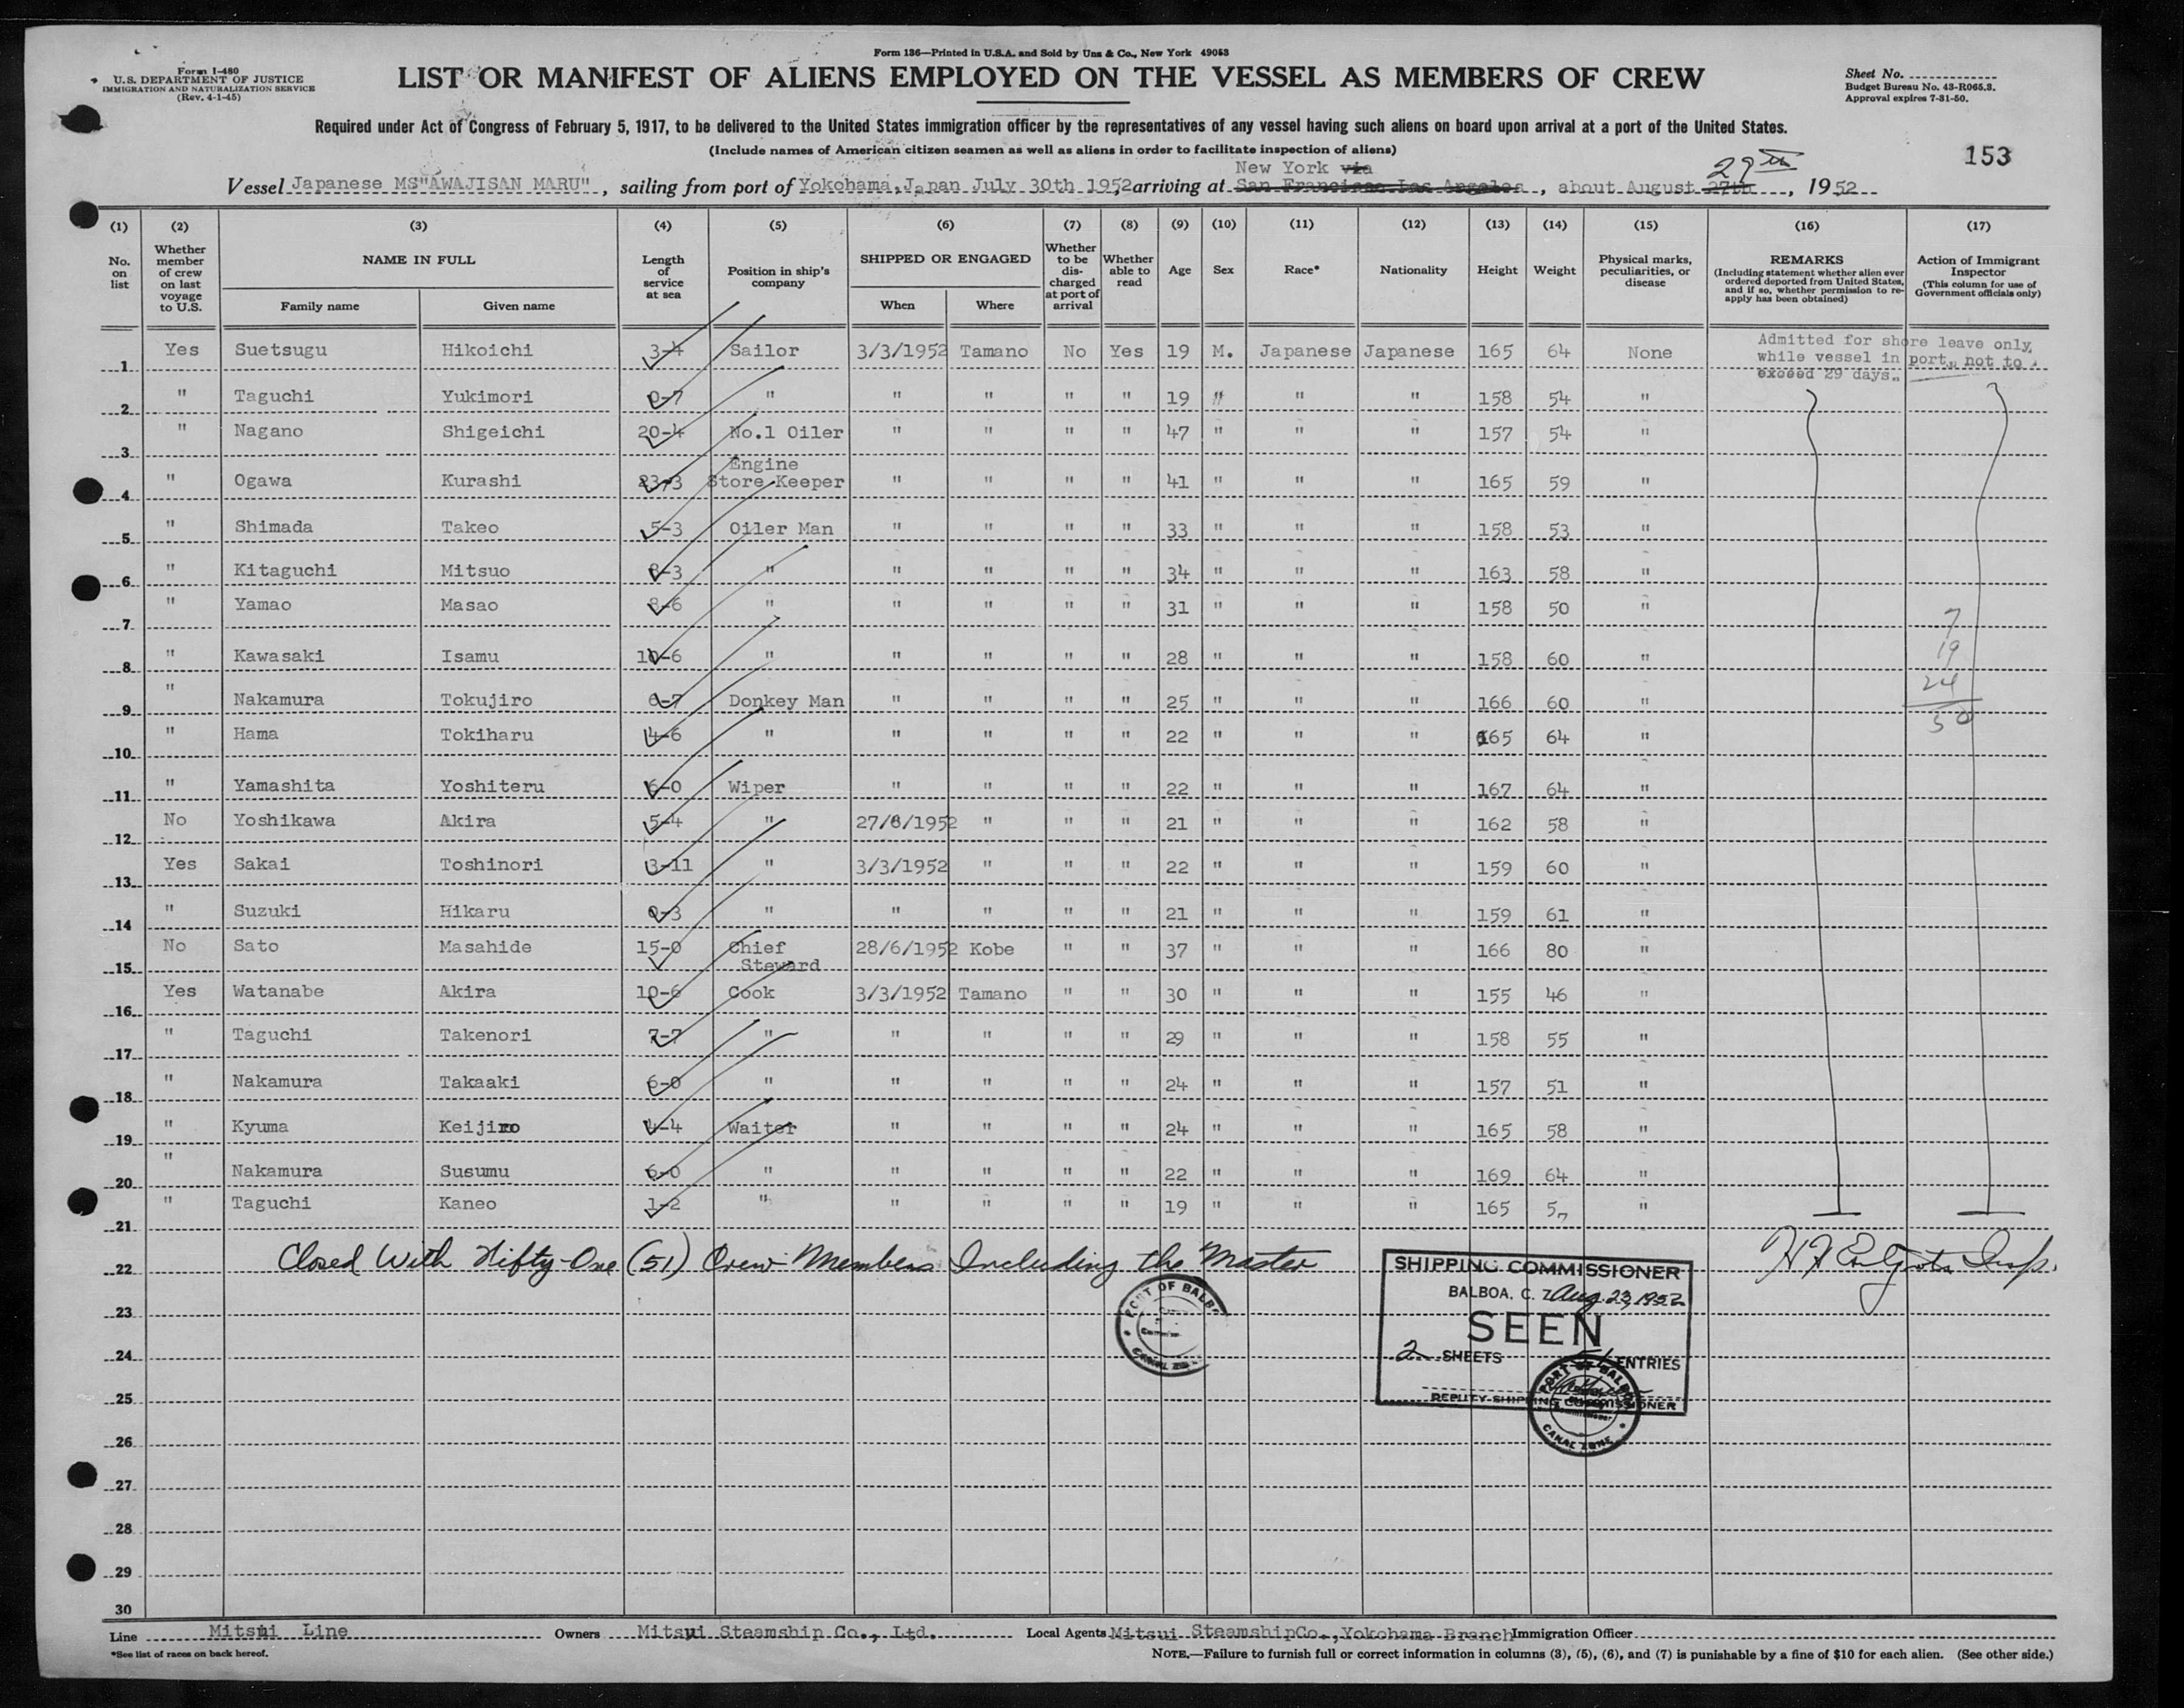 Form 136—Printed in U.S.A. and Sold by Unz & Co., New York 49053
Form I-480
U.S. DEPARTMENT OF JUSTICE
IMMIGRATION AND NATURALIZATION SERVICE
(Rev. 4-1-45)
LIST OR MANIFEST OF ALIENS EMPLOYED ON THE VESSEL AS MEMBERS OF CREW
Sheet No.
Budget Bureau No. 43-R065.3.
Approval expires 7-31-50.
Required under Act of Congress of February 5, 1917, to be delivered to the United States immigration officer by the representatives of any vessel having such aliens on board upon arrival at a port of the United States.
(Include names of American citizen seamen as well as aliens in order to facilitate inspection of aliens)
153
New York via 29th
Vessel Japanese MS"AWAJISAN MARU", sailing from port of Yokohama, Japan July 30th 1952, arriving at San Francisco Los Angeles, about August 27th, 1952
(1) (2) (3) (4) (5) (6) (7) (8) (9) (10) (11) (12) (13) (14) (15) (16) (17)
No. on list
Whether member of crew on last voyage to U.S.
NAME IN FULL
Family name Given name
Length of service at sea
Position in ship's company
SHIPPED OR ENGAGED
When Where
Whether to be discharged at port of arrival
Whether able to read
Age
Sex
Race*
Nationality
Height
Weight
Physical marks, peculiarities, or disease
REMARKS
(Including statement whether alien ever ordered deported from United States, and if so, whether permission to reapply has been obtained)
Action of Immigrant Inspector
(This column for use of Government officials only)
Admitted for shore leave only
while vessel in port, not to
exceed 29 days.
1 Yes Suetsugu Hikoichi 3-4 Sailor 3/3/1952 Tamano No Yes 19 M. Japanese Japanese 165 64 None
2 " Taguchi Yukimori 0-7 " " " " " 19 " " " 158 54 "
3 " Nagano Shigeichi 20-4 No.1 Oiler " " " " 47 " " " 157 54 "
4 " Ogawa Kurashi 23-3 Engine Store Keeper " " " " 41 " " " 165 59 "
5 " Shimada Takeo 5-3 Oiler Man " " " " 33 " " " 158 53 "
6 " Kitaguchi Mitsuo 8-3 " " " " " 34 " " " 163 58 "
7 " Yamao Masao 8-6 " " " " " 31 " " " 158 50 "
8 " Kawasaki Isamu 10-6 " " " " " 28 " " " 158 60 "
9 " Nakamura Tokujiro 6-7 Donkey Man " " " " 25 " " " 166 60 "
10 " Hama Tokiharu 4-6 " " " " " 22 " " " 165 64 "
11 " Yamashita Yoshiteru 6-0 Wiper " " " " 22 " " " 167 64 "
12 No Yoshikawa Akira 5-4 " 27/6/1952 " " " 21 " " " 162 58 "
13 Yes Sakai Toshinori 3-11 " 3/3/1952 " " " 22 " " " 159 60 "
14 " Suzuki Hikaru 0-3 " " " " " 21 " " " 159 61 "
15 No Sato Masahide 15-0 Chief Steward 28/6/1952 Kobe " " 37 " " " 166 80 "
16 Yes Watanabe Akira 10-6 Cook 3/3/1952 Tamano " " 30 " " " 155 46 "
17 " Taguchi Takenori 7-7 " " " " " 29 " " " 158 55 "
18 " Nakamura Takaaki 6-0 " " " " " 24 " " " 157 51 "
19 " Kyuma Keijiro 4-4 Waiter " " " " 24 " " " 165 58 "
20 " Nakamura Susumu 6-0 " " " " " 22 " " " 169 64 "
21 " Taguchi Kaneo 1-2 " " " " " 19 " " " 165 57 "
7
19
24
50
22 Closed With Fifty-One (51) Crew Members Including the Master
23
24
25
26
27
28
29
30
SHIPPING COMMISSIONER
BALBOA, C. Z. Aug. 23, 1952
SEEN
2 SHEETS 51 ENTRIES
DEPUTY SHIPPING COMMISSIONER
PORT OF BALBOA
CANAL ZONE
PORT OF BALBOA
CANAL ZONE
Insp.
Line Mitsui Line Owners Mitsui Steamship Co., Ltd. Local Agents Mitsui SteamshipCo., Yokohama Branch Immigration Officer
*See list of races on back hereof.
NOTE.—Failure to furnish full or correct information in columns (3), (5), (6), and (7) is punishable by a fine of $10 for each alien. (See other side.)